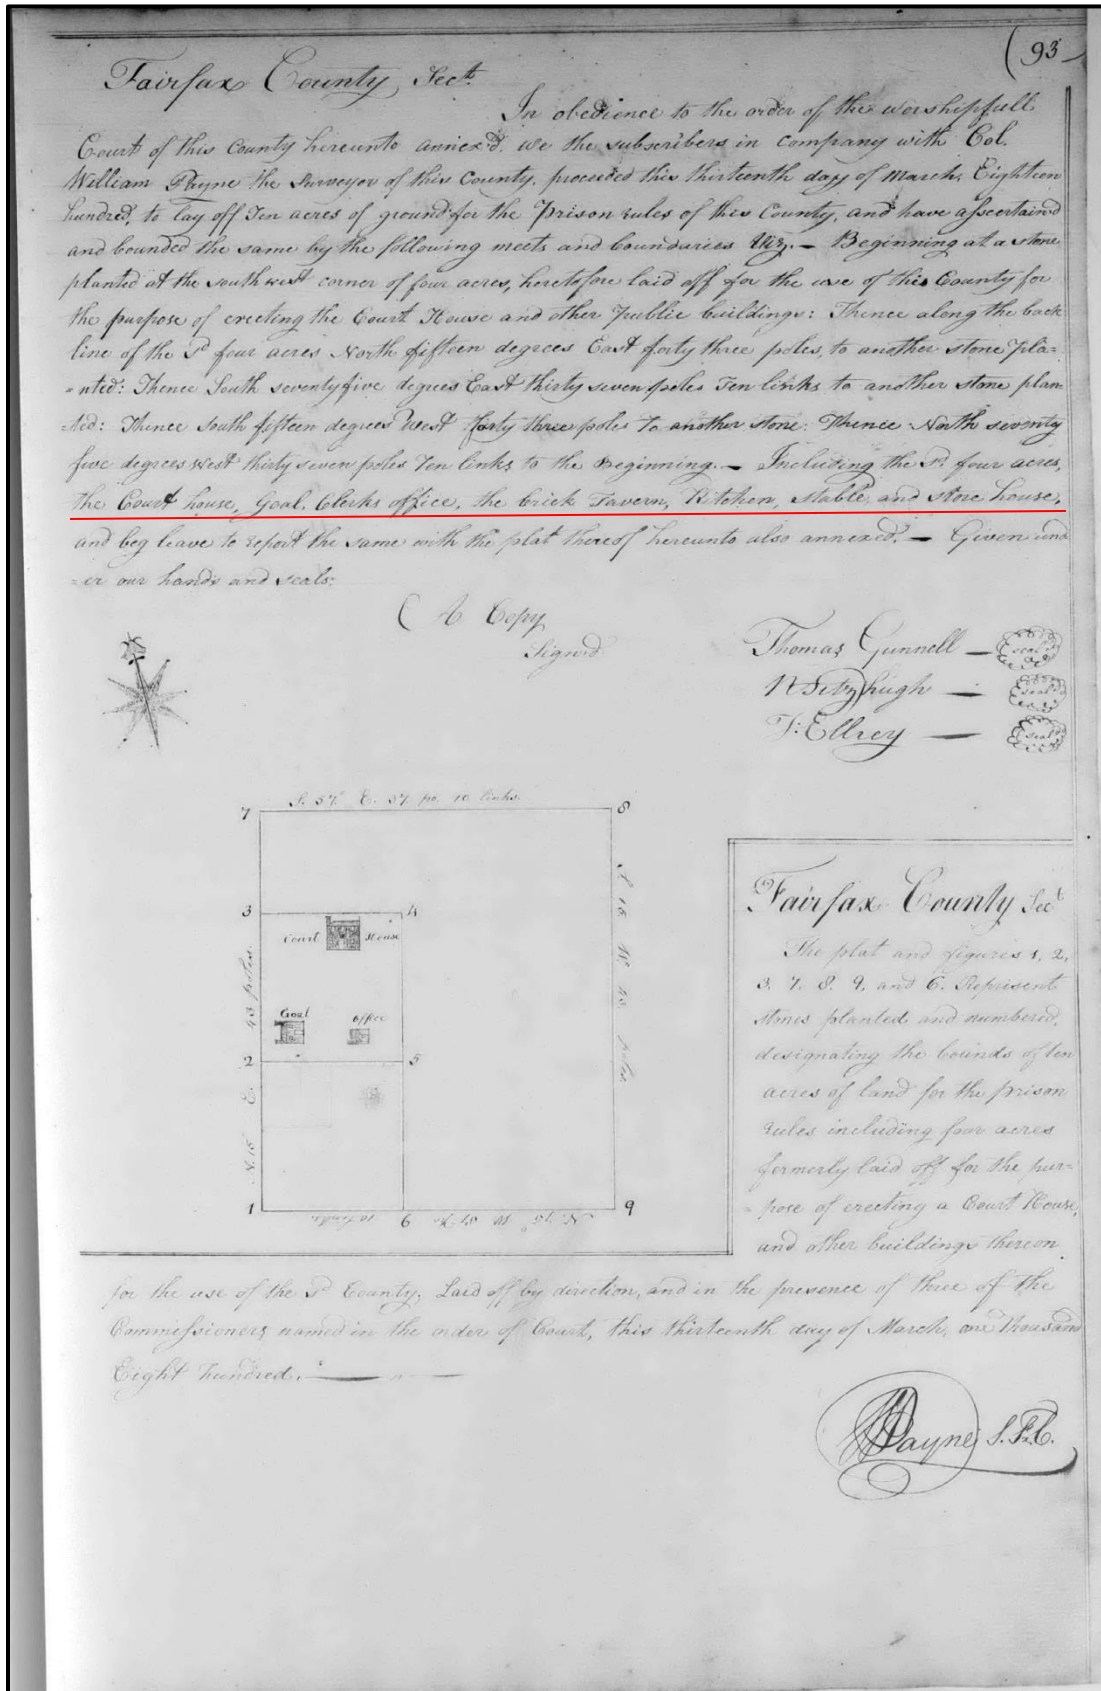 (93
Fairfax County, Sect.
In obedience to the order of the worshipfull
Court of this County hereunto annex'd, we the subscribers in company with Col.
William Payne the Surveyor of this County, proceeded this thirteenth day of March, Eighteen
hundred, to lay off Ten acres of ground for the Prison rules of this County, and have ascertain'd
and bounded the same by the following meets and boundaries Viz. — Beginning at a stone
planted at the south west corner of four acres, heretofore laid off for the use of this County for
the purpose of erecting the Court House and other Public buildings: Thence along the back
line of the Sd. four acres North fifteen degrees East forty three poles, to another stone pla=
=nted: Thence South seventy five degrees East thirty seven poles Ten links to another stone plan=
=ted: Thence South fifteen degrees West forty three poles to another stone: Thence North seventy
five degrees west thirty seven poles Ten links to the Beginning. — Including the Sd. four acres,
the Court house, Goal, Clerks office, the brick Tavern, Kitchen, Stable, and store house,
and beg leave to report the same with the plat thereof hereunto also annexed. — Given und
=er our hands and seals:
(A Copy
Signed
Thomas Gunnell — seal
N Fitzhugh — seal
F: Ellzey — seal
7 8
S. 57. E. 37. po. 10 links.
3 4
Court House
S 15 W. 43 poles
N. 15 E. 43 poles.
Goal office
2 5
1 6 9
N. 75° W 37 Po 10 links
Fairfax County Sect.
The plat and figures 1, 2,
3. 7. 8. 9. and 6. Represent
stones planted and numbered,
designating the bounds of ten
acres of land for the prison
rules including four acres
formerly laid off for the pur=
=pose of erecting a Court House,
and other buildings thereon
for the use of the Sd. County, Laid off by direction, and in the presence of three of the
Commissioners named in the order of Court, this thirteenth day of March, one thousand
Eight hundred.
WPayne S.F.C.